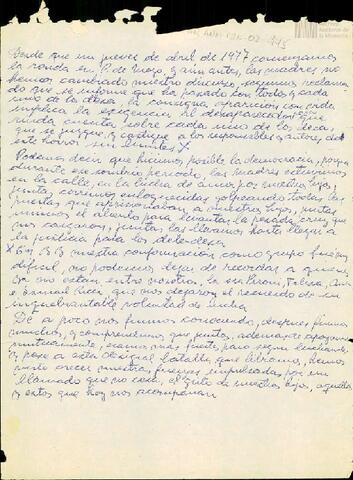 Desde que un jueves de abril de 1977 comenzamos
la ronda en P. de Mayo, y aún antes, las madres no
hemos cambiado nuestro discurso, seguimos reclaman
do que se informe que ha pasado con todos y cada
uno de la lista, la consigna aparición con vida
implica la exigencia al
rinda cuenta sobre cada uno de la lista,
que se juzgue y castigue a los responsables y autores, de
este horror sin límites X
Podemos decir que hicimos posible la democracia, porque
durante ese sombrío período, las madres estuvimos
en la calle, en la lucha de amor por nuestros hijos,
juntas, corrimos enloquecidas golpeando todas las
puertas que aprisionaban a nuestros hijos, juntas
unimos el aliento para levantar la pesada cruz que
nos cargaron, juntas las llevamos hasta llegar a
la justicia para los detenidos
nuestra conformación como grupo fue muy
difícil, no podemos dejar de recordar a quienes
ya no están entre nosotras, la
que nos dejaron el recuerdo de su
inquebrantable voluntad de lucha
De a poco nos fuimos conociendo, después fuimos
muchas, y comprendimos que juntas, además de apoyarnos
mutuamente, éramos más fuertes, para seguir luchando.
y pese a esta desigual batalla que libramos, hemos
visto crecer nuestras fuerzas impulsadas por un
llamado que no cesa, el grito de nuestros hijos, aquellos
y estos que hoy nos acompañan